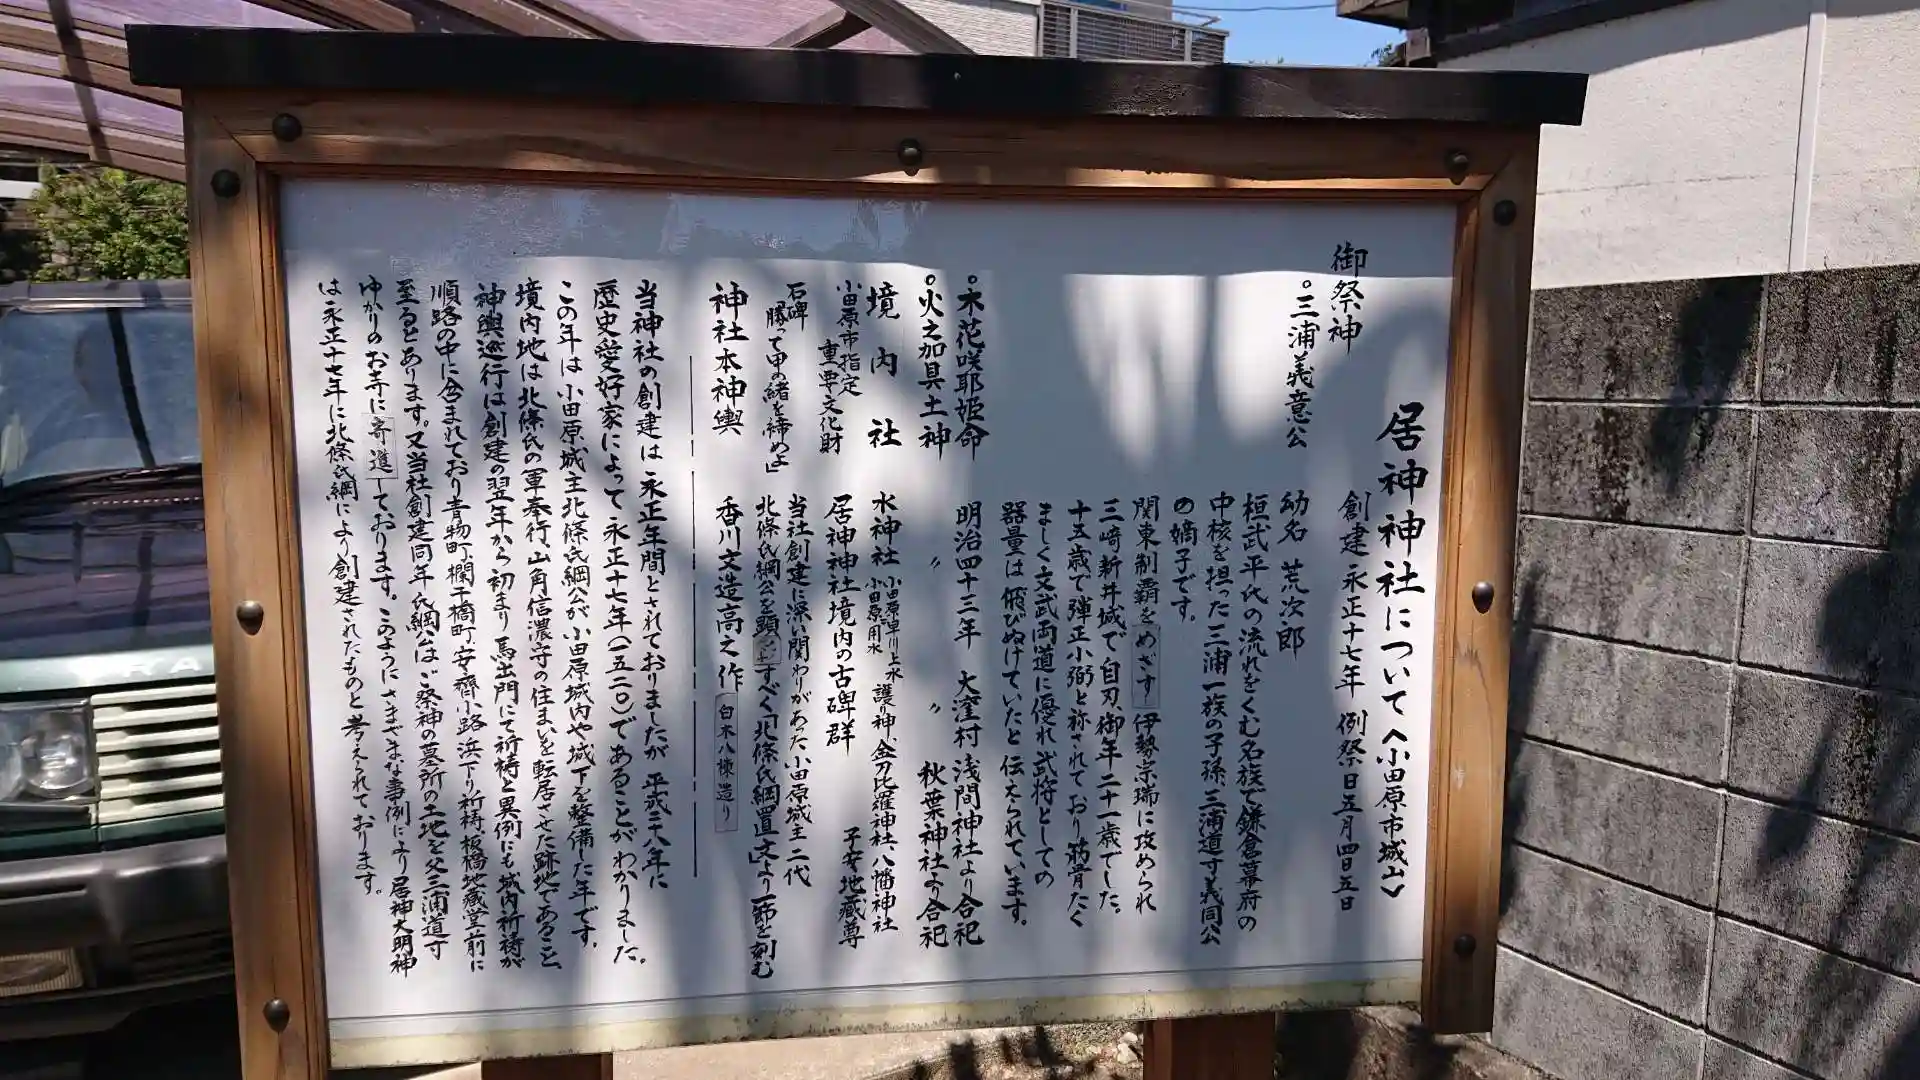 居神神社について〈小田原市城山〉
創建 永正十七年 例祭日五月四日五日
御祭神
。三浦義意公
幼名 荒次郎
桓武平氏の流れをくむ名族で鎌倉幕府の
中核を担った三浦一族の子孫、三浦道寸義同公
の嫡子です。
関東制覇をめざす伊勢宗瑞に攻められ
三崎新井城で自刃、御年二十一歳でした。
十五歳で弾正小弼と称されており筋骨たく
ましく文武両道に優れ武将としての
器量は飛びぬけていたと伝えられています。
。木花咲耶姫命 明治四十三年 大窪村 浅間神社より合祀
。火之加具土神 〃 〃 秋葉神社より合祀
境内社 水神社 小田原早川上水 小田原用水 護り神、金刀比羅神社、八幡神社
子安地蔵尊
小田原市指定 重要文化財 居神神社境内の古碑群
石碑 当社創建に深い関わりがあった小田原城主二代
「勝って甲の緒を締めよ」 北條氏綱公を顕彰すべく「北條氏綱置文」より一節を刻む
神社本神輿 香川文造高之作 白木八棟造り
当神社の創建は永正年間とされておりましたが平成二十八年に
歴史愛好家によって永正十七年(一五二〇)であることがわかりました。
この年は小田原城主北條氏綱公が小田原城内や城下を整備した年です。
境内地は北條氏の軍奉行山角信濃守の住まいを転居させた跡地であること、
神輿巡行は創建の翌年から初まり馬出門にて祈祷と異例にも城内祈祷が
順路の中に含まれており青物町、欄干橋町、安斎小路浜下り祈祷、板橋地蔵堂前に
至るとあります。又当社創建同年氏綱公はご祭神の墓所の土地を父三浦道寸
ゆかりのお寺に寄進しております。このようにさまざまな事例により居神大明神
は永正十七年に北條氏綱により創建されたものと考えられております。